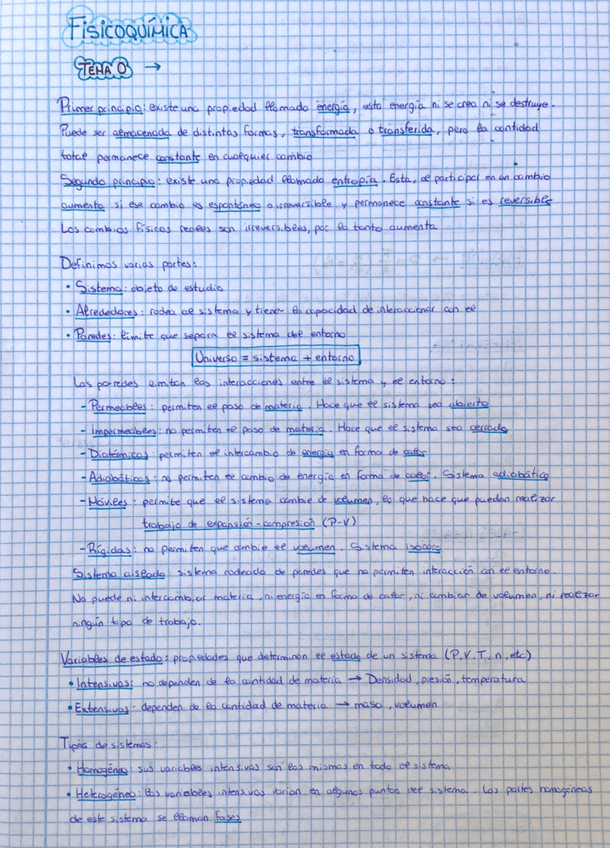 FISICOQUÍMICA
TEMA 0 →
Primer principio: existe una propiedad llamada energía, esta energía ni se crea ni se destruye.
Puede ser almacenada de distintas formas, transformada o transferida, pero la cantidad
total permanece constante en cualquier cambio
Segundo principio: existe una propiedad llamada entropía. Esta, al participar en un cambio
aumenta si ese cambio es espontáneo o irreversible y permanece constante si es reversible
Los cambios físicos reales son irreversibles, por lo tanto aumenta
Definimos varias partes:
• Sistema: objeto de estudio
• Alrededores: rodea al sistema y tiene la capacidad de interaccionar con el
• Paredes: límite que separa el sistema del entorno
Universo = sistema + entorno
Las paredes limitan las interacciones entre el sistema y el entorno:
- Permeables: permiten el paso de materia. Hace que el sistema sea abierto
- Impermeables: no permiten el paso de materia. Hace que el sistema sea cerrado
- Diatérmicas: permiten el intercambio de energía en forma de calor
- Adiabáticas: no permiten el cambio de energía en forma de calor. Sistema adiabático
- Móviles: permite que el sistema cambie de volumen, lo que hace que puedan realizar
trabajo de expansión-compresión (P-V)
- Rígidas: no permiten que cambie el volumen. Sistema isócoro
Sistema aislado: sistema rodeado de paredes que no permiten interacción con el entorno.
No puede ni intercambiar materia, ni energía en forma de calor, ni cambiar de volumen, ni realizar
ningún tipo de trabajo.
Variables de estado: propiedades que determinan el estado de un sistema (P,V,T,n,etc)
• Intensivas: no dependen de la cantidad de materia → Densidad, presión, temperatura
• Extensivas: dependen de la cantidad de materia → masa, volumen
Tipos de sistemas:
• Homogéneo: sus variables intensivas son las mismas en todo el sistema
• Heterogéneo: las variables intensivas varían en algunos puntos del sistema. Las partes homogéneas
de este sistema se llaman fases